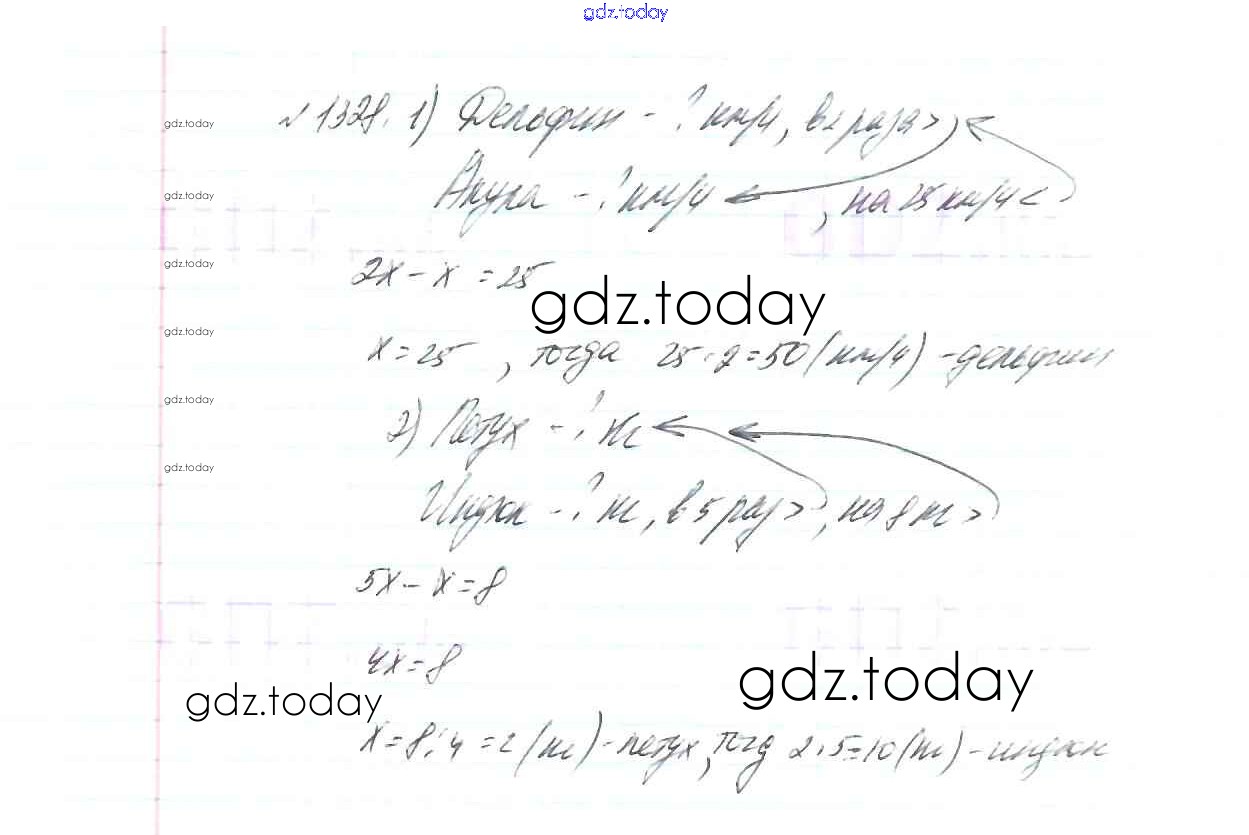 gdz.today
№1328. 1) Дельфин - ? км/ч, в 2 раза >,
gdz.today
Акула - ? км/ч, на 25 км/ч <
gdz.today
2x - x = 25
gdz.today
gdz.today
x = 25, тогда 25 · 2 = 50 (км/ч) - дельфин
gdz.today
2) Петух - ? кг
gdz.today
Индюк - ? кг, в 5 раз >, на 8 кг >
gdz.today
5x - x = 8
4x = 8
gdz.today
gdz.today
x = 8 : 4 = 2 (кг) - петух, тогд 2 · 5 = 10 (кг) - индюк